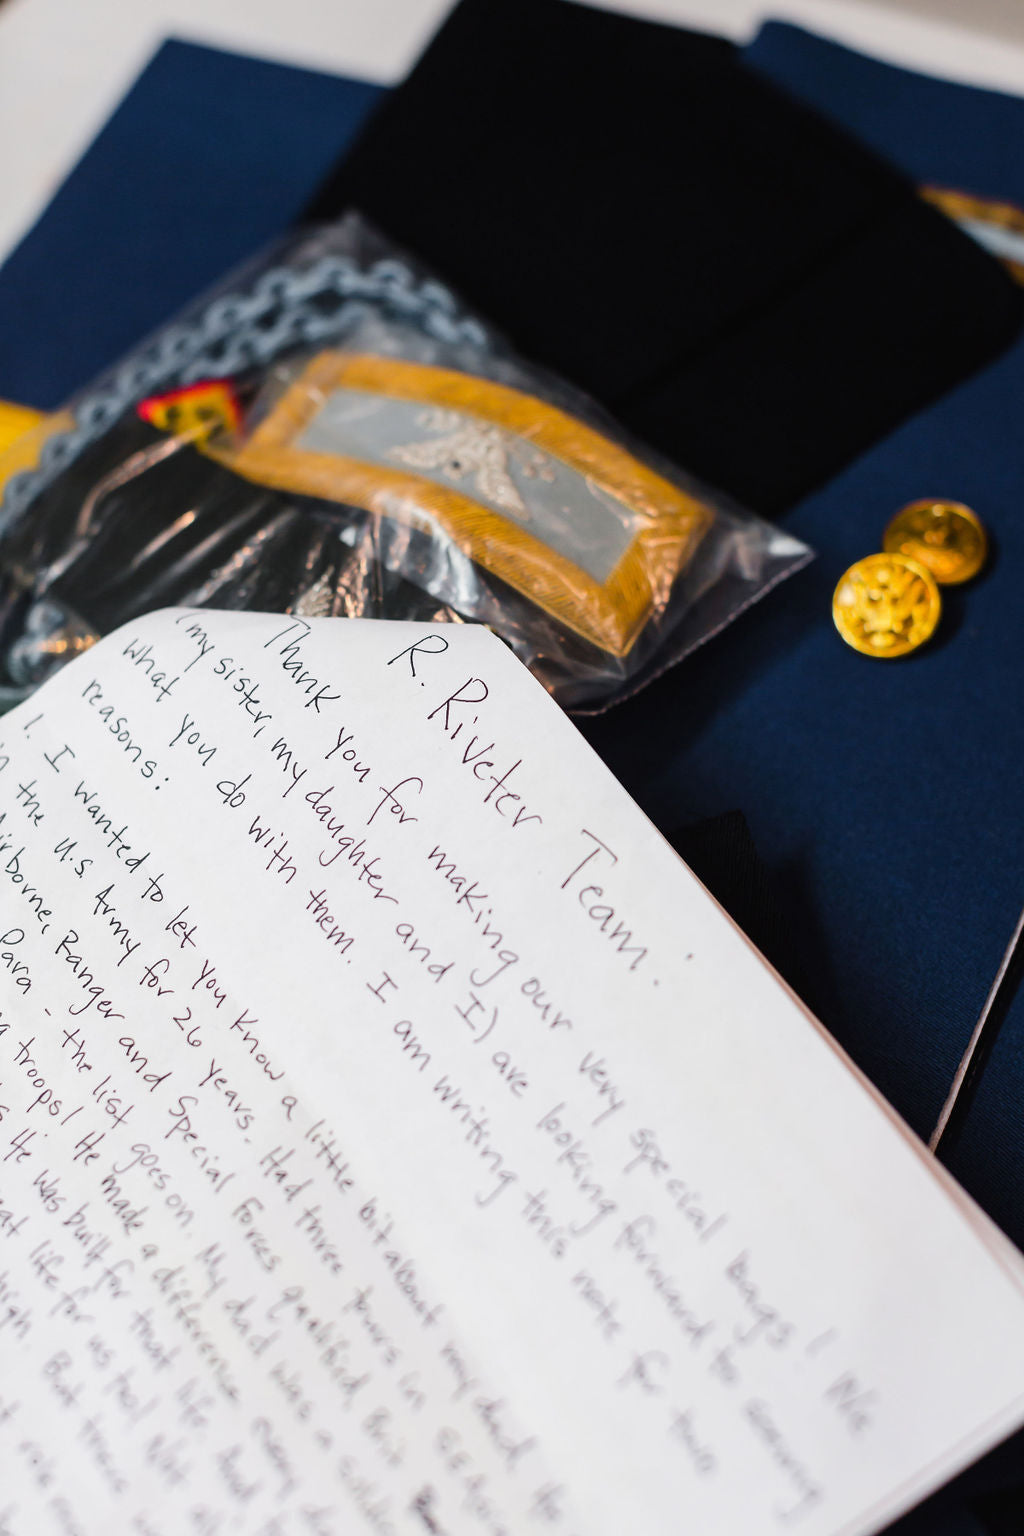 R. Riveter Team:
Thank you for making our very special bags! We
(my sister, my daughter and I) are looking forward to seeing
what you do with them. I am writing this note for two
reasons:
1. I wanted to let you know a little bit about my dad. He
in the U.S. Army for 26 years. Had three tours in
Airborne, Ranger and Special Forces qualified, Brit
Para - the list goes on. My dad was a
troops! He made a difference every
He was built for that life. And
life for us too! Not
high. But